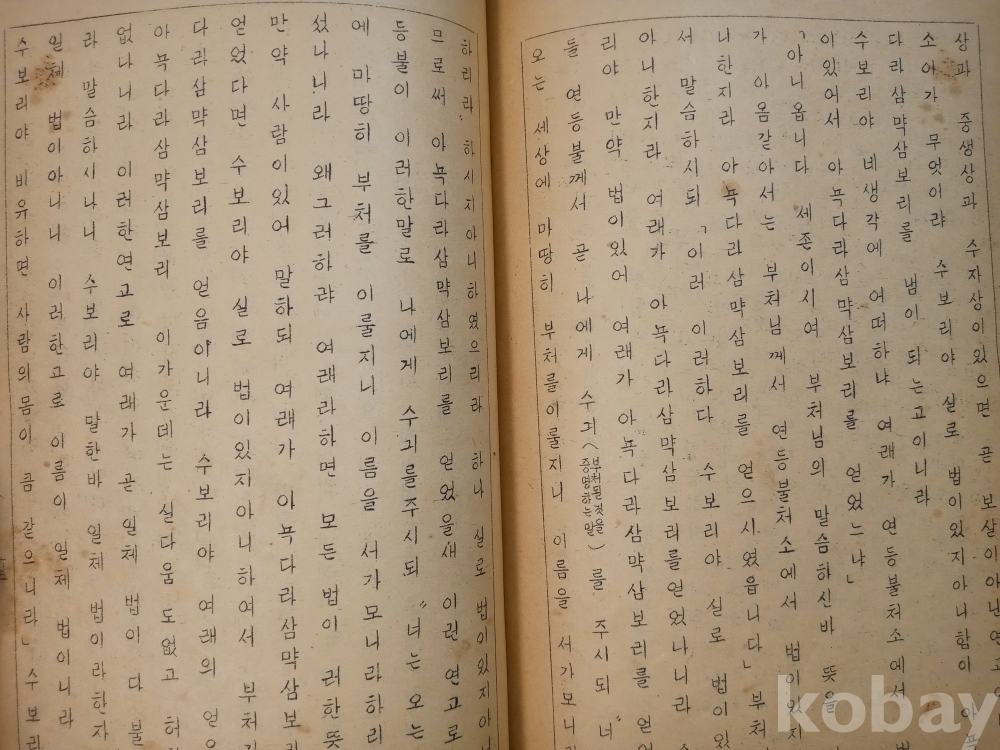 상과 중생상과 수자상이있으면 곧 보살이아닌연고
소이가 무엇이랴 수보리야 실로 법이있지아니함이 아뇩
다라삼먁삼보리를 범이 되는고이니라
수보리야 네생각에 어떠하냐 여래가 연등불처소에서
이있어서 아뇩다라삼먁삼보리를 얻었느냐」
「아니옵니다 세존이시여 부처님의 말슴하신바 뜻을
가 아옴같아서는 부처님께서 연등불처소에서 법이있지
니한지라 아뇩다라삼먁삼보리를 얻으시였읍니다」 부처
서 말슴하시되 「이러 이러하다 수보리야 실로 법이있
아니한지라 여래가 아뇩다라삼먁삼보리를얻었나니라
리야 만약 법이있어 여래가 아뇩다라삼먁삼보리를 얻
들 연등불께서 곧 나에게 수긔(부처될것을 증명하는말)를 주시되 “너
오는 세상에 마땅히 부처를이룰지니 이름을 서가모니
하리라” 하시지아니하였으리라 하나 실로 법이있지아니
므로써 아뇩다라삼먁삼보리를 얻었을새 이런 연고로
등불이 이러한말로 나에게 수긔를주시되 “너는 오는
에 마땅히 부처를 이룰지니 이름을 서가모니라하리
섰나니라 왜그러하랴 여래라하면 모든 법이 러한뜻
만약 사람이있어 말하되 여래가 아뇩다라삼먁삼보
얻었다면 수보리야 실로 법이있지아니하여서 부처
다라삼먁삼보리를 얻음이니라 수보리야 여래의 얻은
아뇩다라삼먁삼보리 이가운데는 실다움도없고 허
없나니라 이러한연고로 여래가 곧 일체 법이 다 불
라 말슴하시나니 수보리야 말한바 일체 법이라한자
일체 법이아니니 이러한고로 이름이 일체 법이니라
수보리야 비유하면 사람의몸이 큼 같으니라」 수보리
kobay